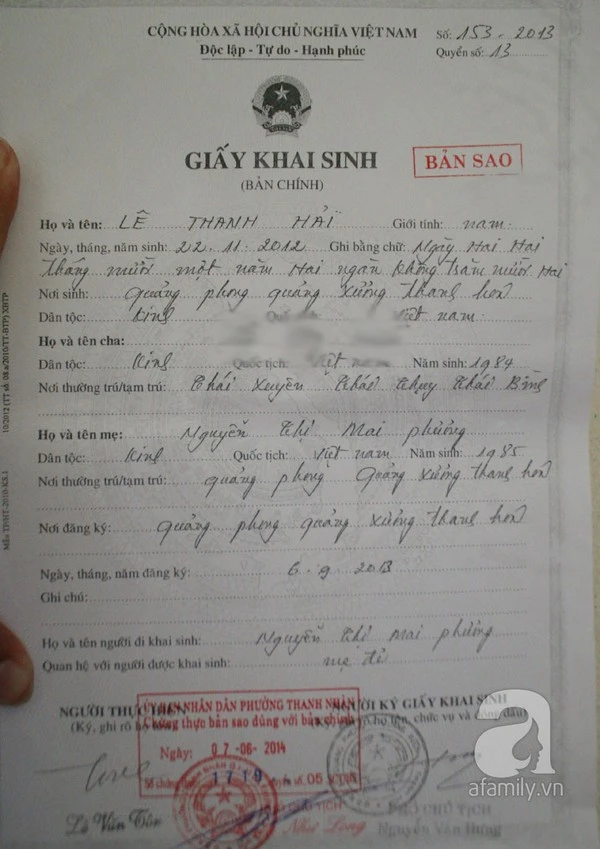 CỘNG HÒA XÃ HỘI CHỦ NGHĨA VIỆT NAM
Độc lập - Tự do - Hạnh phúc
Số: 153 - 2013
Quyển số: 13
GIẤY KHAI SINH
(BẢN CHÍNH)
BẢN SAO
Họ và tên: LÊ THANH HẢI Giới tính: nam
Ngày, tháng, năm sinh: 22.11.2012 Ghi bằng chữ: Ngày Hai Hai
tháng mười một năm Hai ngàn không trăm mười Hai
Nơi sinh: quảng phong quảng xương thanh hoá
Dân tộc: Kinh Việt nam
Họ và tên cha:
Dân tộc: Kinh Quốc tịch: Việt nam Năm sinh: 1984
Nơi thường trú/tạm trú: thái xuyên thái thụy thái Bình
Họ và tên mẹ: Nguyễn thị Mai phương
Dân tộc: Kinh Quốc tịch: Việt nam Năm sinh: 1985
Nơi thường trú/tạm trú: quảng phong quảng xương thanh hoá
Nơi đăng ký: quảng phong quảng xương thanh hoá
Ngày, tháng, năm đăng ký: 6.9.2013
Ghi chú:
Họ và tên người đi khai sinh: Nguyễn thị Mai phương
Quan hệ với người được khai sinh: mẹ đẻ
NGƯỜI THỰC HIỆN
(Ký, ghi rõ họ
NGƯỜI KÝ GIẤY KHAI SINH
họ tên, chức vụ và đóng dấu)
ỦY BAN NHÂN DÂN PHƯỜNG THANH NHÀN
Chứng thực bản sao đúng với bản chính
Ngày: 07-06-2014
1719 05
Lê Văn
Như Long
PHÓ CHỦ TỊCH
Nguyễn Văn Hưng
a
afamily.vn